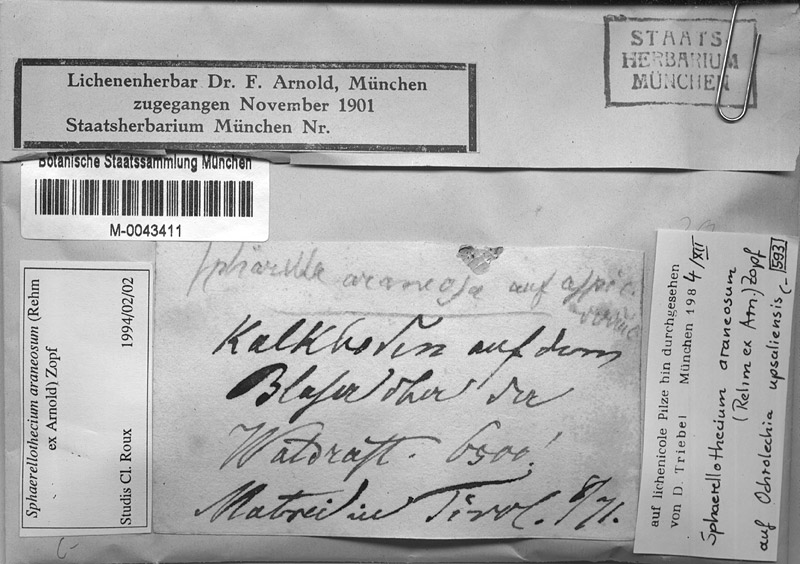 Lichenenherbar Dr. F. Arnold, München
zugegangen November 1901
Staatsherbarium München Nr.
STAATS
HERBARIUM
MÜNCHEN
Botanische Staatssammlung München
M-0043411
Sphaerellothecium araneosum (Rehm
ex Arnold) Zopf
Studis Cl. Roux 1994/02/02
araneosa auf
Kalkboden auf dem
Blaser ober der
Waldrast. 6500'
Matrei in Tirol. 8/71.
auf lichenicole Pilze hin durchgesehen
von D. Triebel München 1984/XII
Sphaerellothecium araneosum
(Rehm ex Arn.) Zopf
auf Ochrolechia upsaliensis (-
593
(-